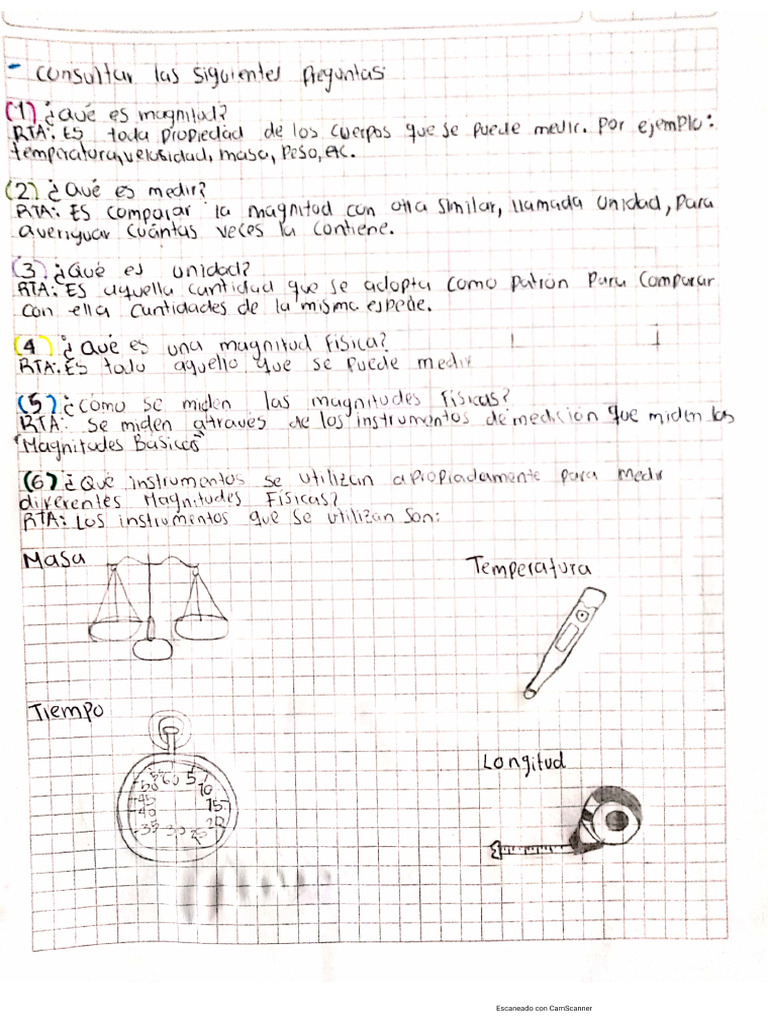 - Consultar las siguientes Preguntas:
(1) ¿Qué es magnitud?
RTA: ES toda propiedad de los cuerpos que se puede medir. Por ejemplo:
temperatura, velosidad, masa, Peso, etc.
(2) ¿Qué es medir?
RTA: ES comparar la magnitud con otra similar, llamada unidad, para
averiguar cuántas veces la contiene.
(3) ¿Qué es unidad?
RTA: ES aquella cantidad que se adopta como patrón para comparar
con ella cantidades de la misma espede.
(4) ¿Qué es una magnitud Física?
RTA: ES todo aquello que se puede medir
(5) ¿Cómo se miden las magnitudes Físicas?
RTA: Se miden através de los instrumentos de medición que miden las
"Magnitudes Básicas"
(6) ¿Qué instrumentos se utilizan apropiadamente para medir
diferentes Magnitudes Físicas?
RTA: Los instrumentos que se utilizan son:
Masa
Temperatura
Tiempo
60 5 10 15 20 25 30 35 40 45 50
Longitud
Escaneado con CamScanner